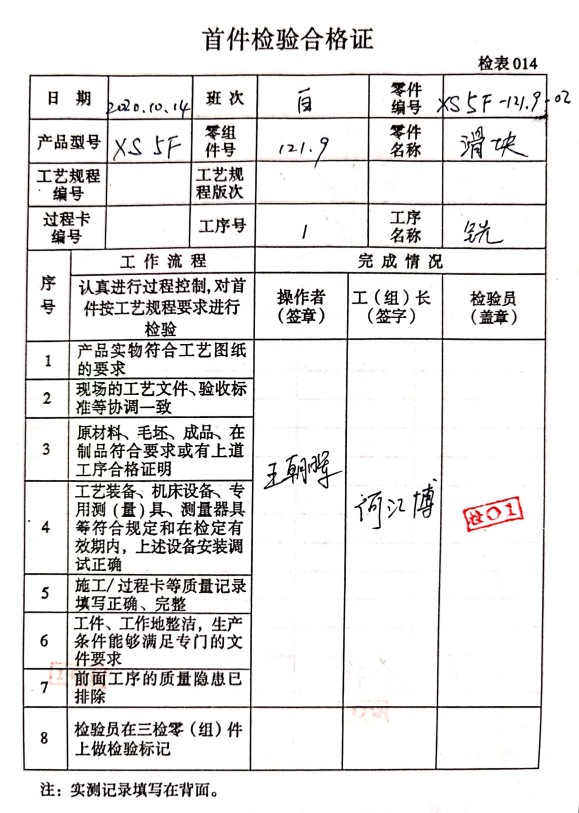 首件检验合格证
检表 014
日 期 2020.10.14 班 次 白 零件编号 XS 5F-121.9-02
产品型号 XS 5F 零组件号 121.9 零件名称 滑块
工艺规程编号 工艺规程版次
过程卡编号 工序号 1 工序名称 铣
序号 工 作 流 程 完 成 情 况
认真进行过程控制,对首件按工艺规程要求进行检验 操作者(签章) 工(组)长(签字) 检验员(盖章)
1 产品实物符合工艺图纸的要求
2 现场的工艺文件、验收标准等协调一致
3 原材料、毛坯、成品、在制品符合要求或有上道工序合格证明
王朝晖 何江博
4 工艺装备、机床设备、专用测(量)具、测量器具等符合规定和在检定有效期内,上述设备安装调试正确
01
5 施工/过程卡等质量记录填写正确、完整
6 工件、工作地整洁,生产条件能够满足专门的文件要求
7 前面工序的质量隐患已排除
8 检验员在三检零(组)件上做检验标记
注:实测记录填写在背面。